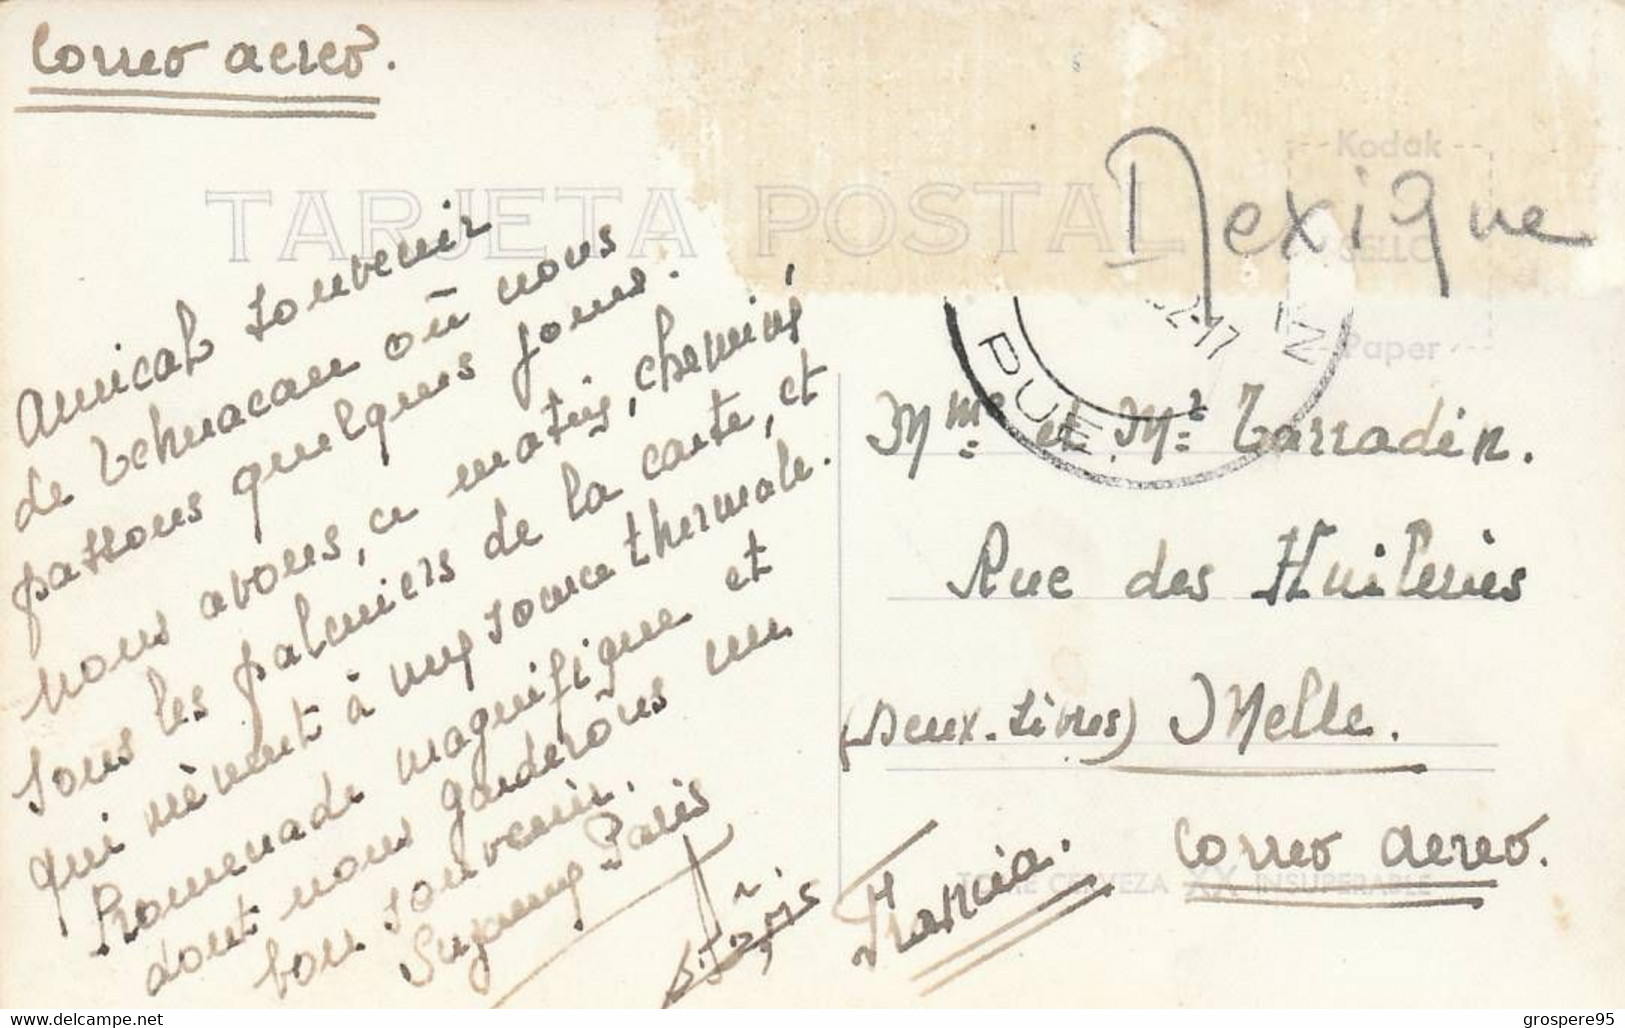 Correo aereo.
TARJETA POSTAL
Kodak
SELLO
Paper
Mexique
52-17
PUE
Amical souvenir
de Tehuacan où nous
passons quelques jours.
nous avons, ce matin, cheminé
sous les palmiers de la carte, et
qui mènent à une source thermale.
Promenade magnifique et
dont nous garderons un
bon souvenir.
Suzanne Paris
Mme et Mr Tarradin.
Rue des Huileries
(Deux-Sèvres) Melle.
Francia.
Correo aereo.
TOME CERVEZA XX INSUPERABLE
delcampe.net
grospere95